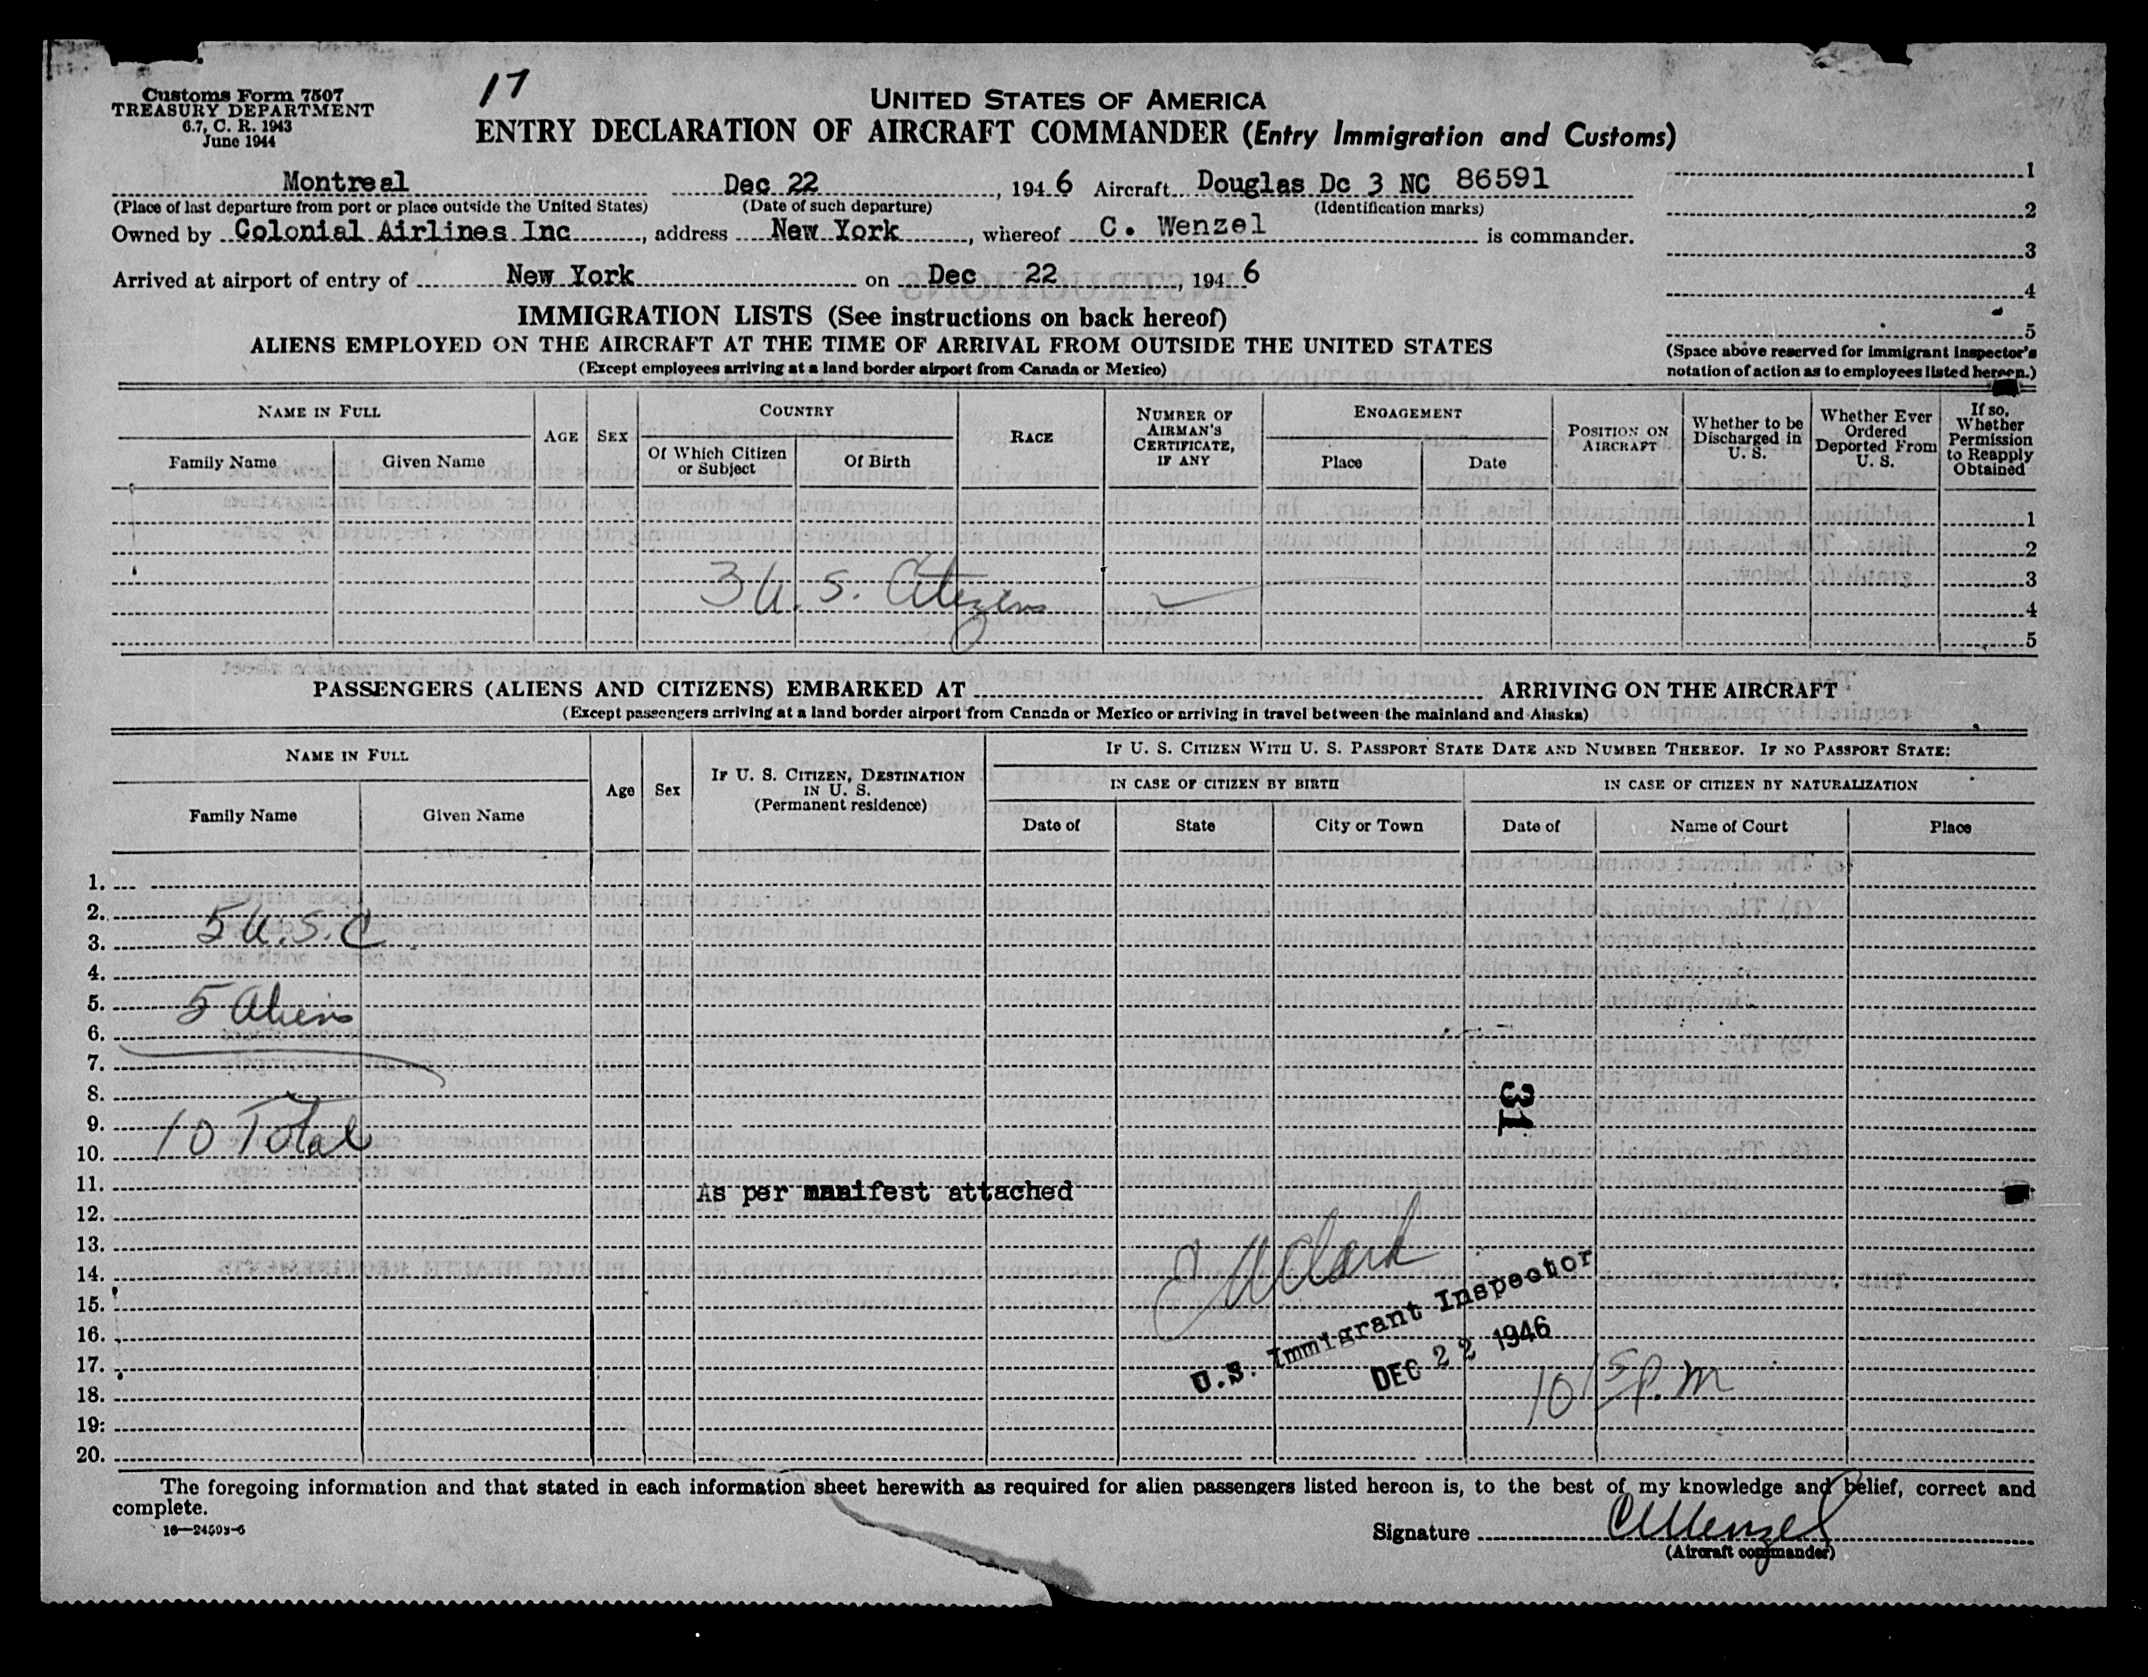 17
Customs Form 7507
TREASURY DEPARTMENT
6.7, C. R. 1943
June 1944
UNITED STATES OF AMERICA
ENTRY DECLARATION OF AIRCRAFT COMMANDER (Entry Immigration and Customs)
Montreal Dec 22, 1946 Aircraft Douglas Dc 3 NC 86591
(Place of last departure from port or place outside the United States) (Date of such departure) (Identification marks)
Owned by Colonial Airlines Inc, address New York, whereof C. Wenzel is commander.
Arrived at airport of entry of New York on Dec 22, 1946
1
2
3
4
5
(Space above reserved for immigrant inspector's
notation of action as to employees listed hereon.)
IMMIGRATION LISTS (See instructions on back hereof)
ALIENS EMPLOYED ON THE AIRCRAFT AT THE TIME OF ARRIVAL FROM OUTSIDE THE UNITED STATES
(Except employees arriving at a land border airport from Canada or Mexico)
NAME IN FULL
Family Name Given Name
AGE
SEX
COUNTRY
Of Which Citizen or Subject
Of Birth
RACE
NUMBER OF AIRMAN'S CERTIFICATE, IF ANY
ENGAGEMENT
Place Date
POSITION ON AIRCRAFT
Whether to be Discharged in U. S.
Whether Ever Ordered Deported From U. S.
If so, Whether Permission to Reapply Obtained
1
2
3
3 U. S. Citizens
4
5
PASSENGERS (ALIENS AND CITIZENS) EMBARKED AT ARRIVING ON THE AIRCRAFT
(Except passengers arriving at a land border airport from Canada or Mexico or arriving in travel between the mainland and Alaska)
NAME IN FULL
Family Name Given Name
Age
Sex
IF U. S. CITIZEN, DESTINATION IN U. S.
(Permanent residence)
IF U. S. CITIZEN WITH U. S. PASSPORT STATE DATE AND NUMBER THEREOF. IF NO PASSPORT STATE:
IN CASE OF CITIZEN BY BIRTH
Date of State City or Town
IN CASE OF CITIZEN BY NATURALIZATION
Date of Name of Court Place
1.
2.
3. 5 U.S.C.
4.
5.
6. 5 Aliens
7.
8.
9. 31
10. 10 Total
11. As per manifest attached
12.
13.
14.
15.
16.
17.
18.
19.
20.
U.S. Immigrant Inspector
DEC 22 1946
10 15 P.M
The foregoing information and that stated in each information sheet herewith as required for alien passengers listed hereon is, to the best of my knowledge and belief, correct and
complete.
Signature C Wenzel
(Aircraft commander)